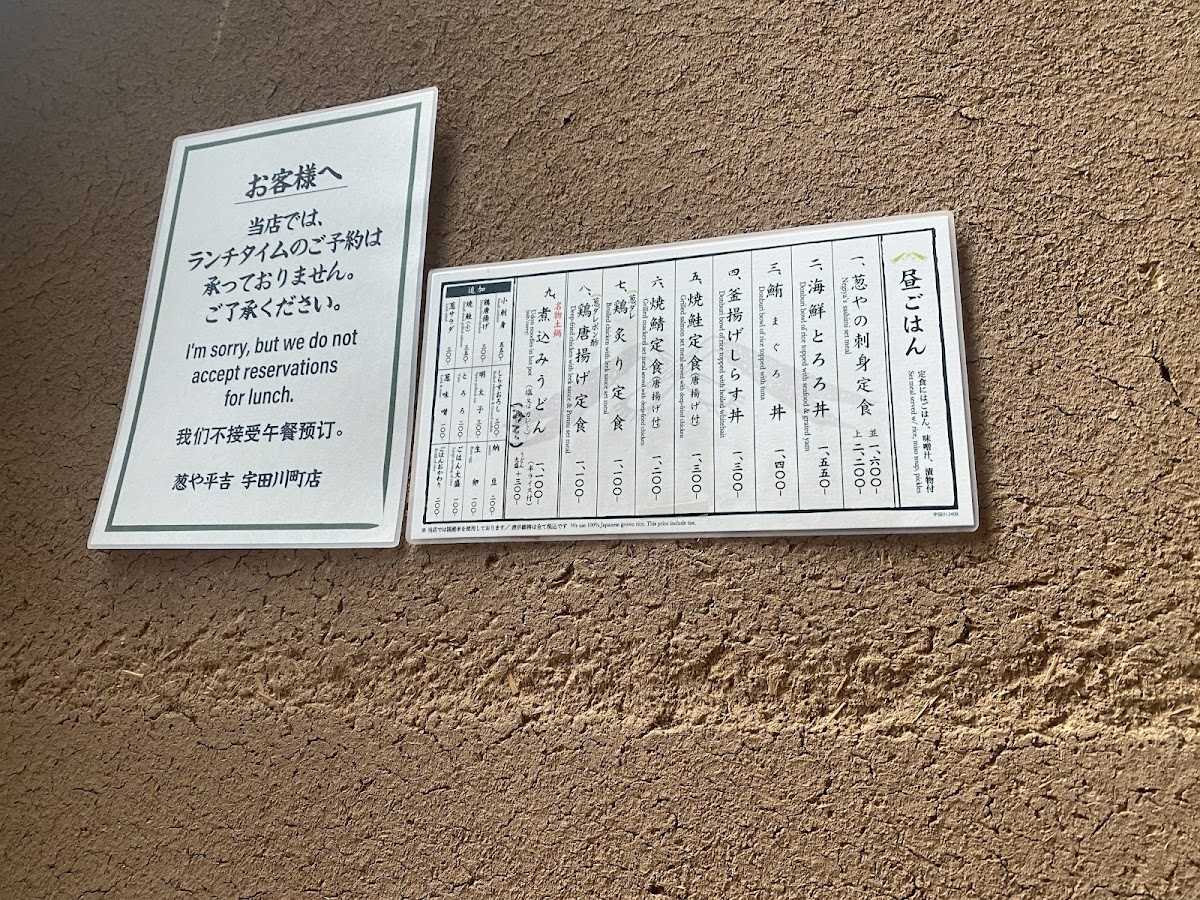 お客様へ
当店では、
ランチタイムのご予約は
承っておりません。
ご了承ください。
I'm sorry, but we do not
accept reservations
for lunch.
我们不接受午餐预订。
葱や平吉 宇田川町店
昼ごはん
定食にはごはん、味噌汁、漬物付
Set meal served w/ rice, miso soup, pickles
一、葱や刺身定食 並 一、六〇〇-
上 二、二〇〇-
Negiya's sashimi set meal
二、海鮮とろろ丼 一、五五〇-
Donburi bowl of rice topped with seafood & grated yam
三、鮪まぐろ丼 一、四〇〇-
Donburi bowl of rice topped with tuna
四、釜揚げしらす丼 一、三〇〇-
Donburi bowl of rice topped with boiled whitebait
五、焼鮭定食(唐揚げ付) 一、三〇〇-
Grilled salmon set meal served with deep-fried chicken
六、焼鯖定食(唐揚げ付) 一、二〇〇-
Grilled mackerel set meal served with deep-fried chicken
七、葱ダレ鶏炙り定食 一、一〇〇-
Broiled chicken with leek sauce set meal
八、葱ダレポン酢
鶏唐揚げ定食 一、一〇〇-
Deep-fried chicken with leek sauce & Ponzu set meal
名物土鍋
九、煮込みうどん 一、一〇〇-
Udon noodles in hot pot
(半ライス付)
うどん大盛+三〇〇-
追加
小刺身 五五〇-
鶏唐揚げ 三〇〇-
焼鮭(小) 三五〇-
葱サラダ 三〇〇-
しらすおろし 三〇〇-
明太子 三〇〇-
とろろ 二〇〇-
葱味噌 一〇〇-
納豆 二〇〇-
生卵 一〇〇-
ごはん大盛 一〇〇-
ごはんおかわり 二〇〇-
※当店では国産米を使用しております/表示価格は全て税込です We use 100% Japanese grown rice. This price include tax.
宇田川 2408